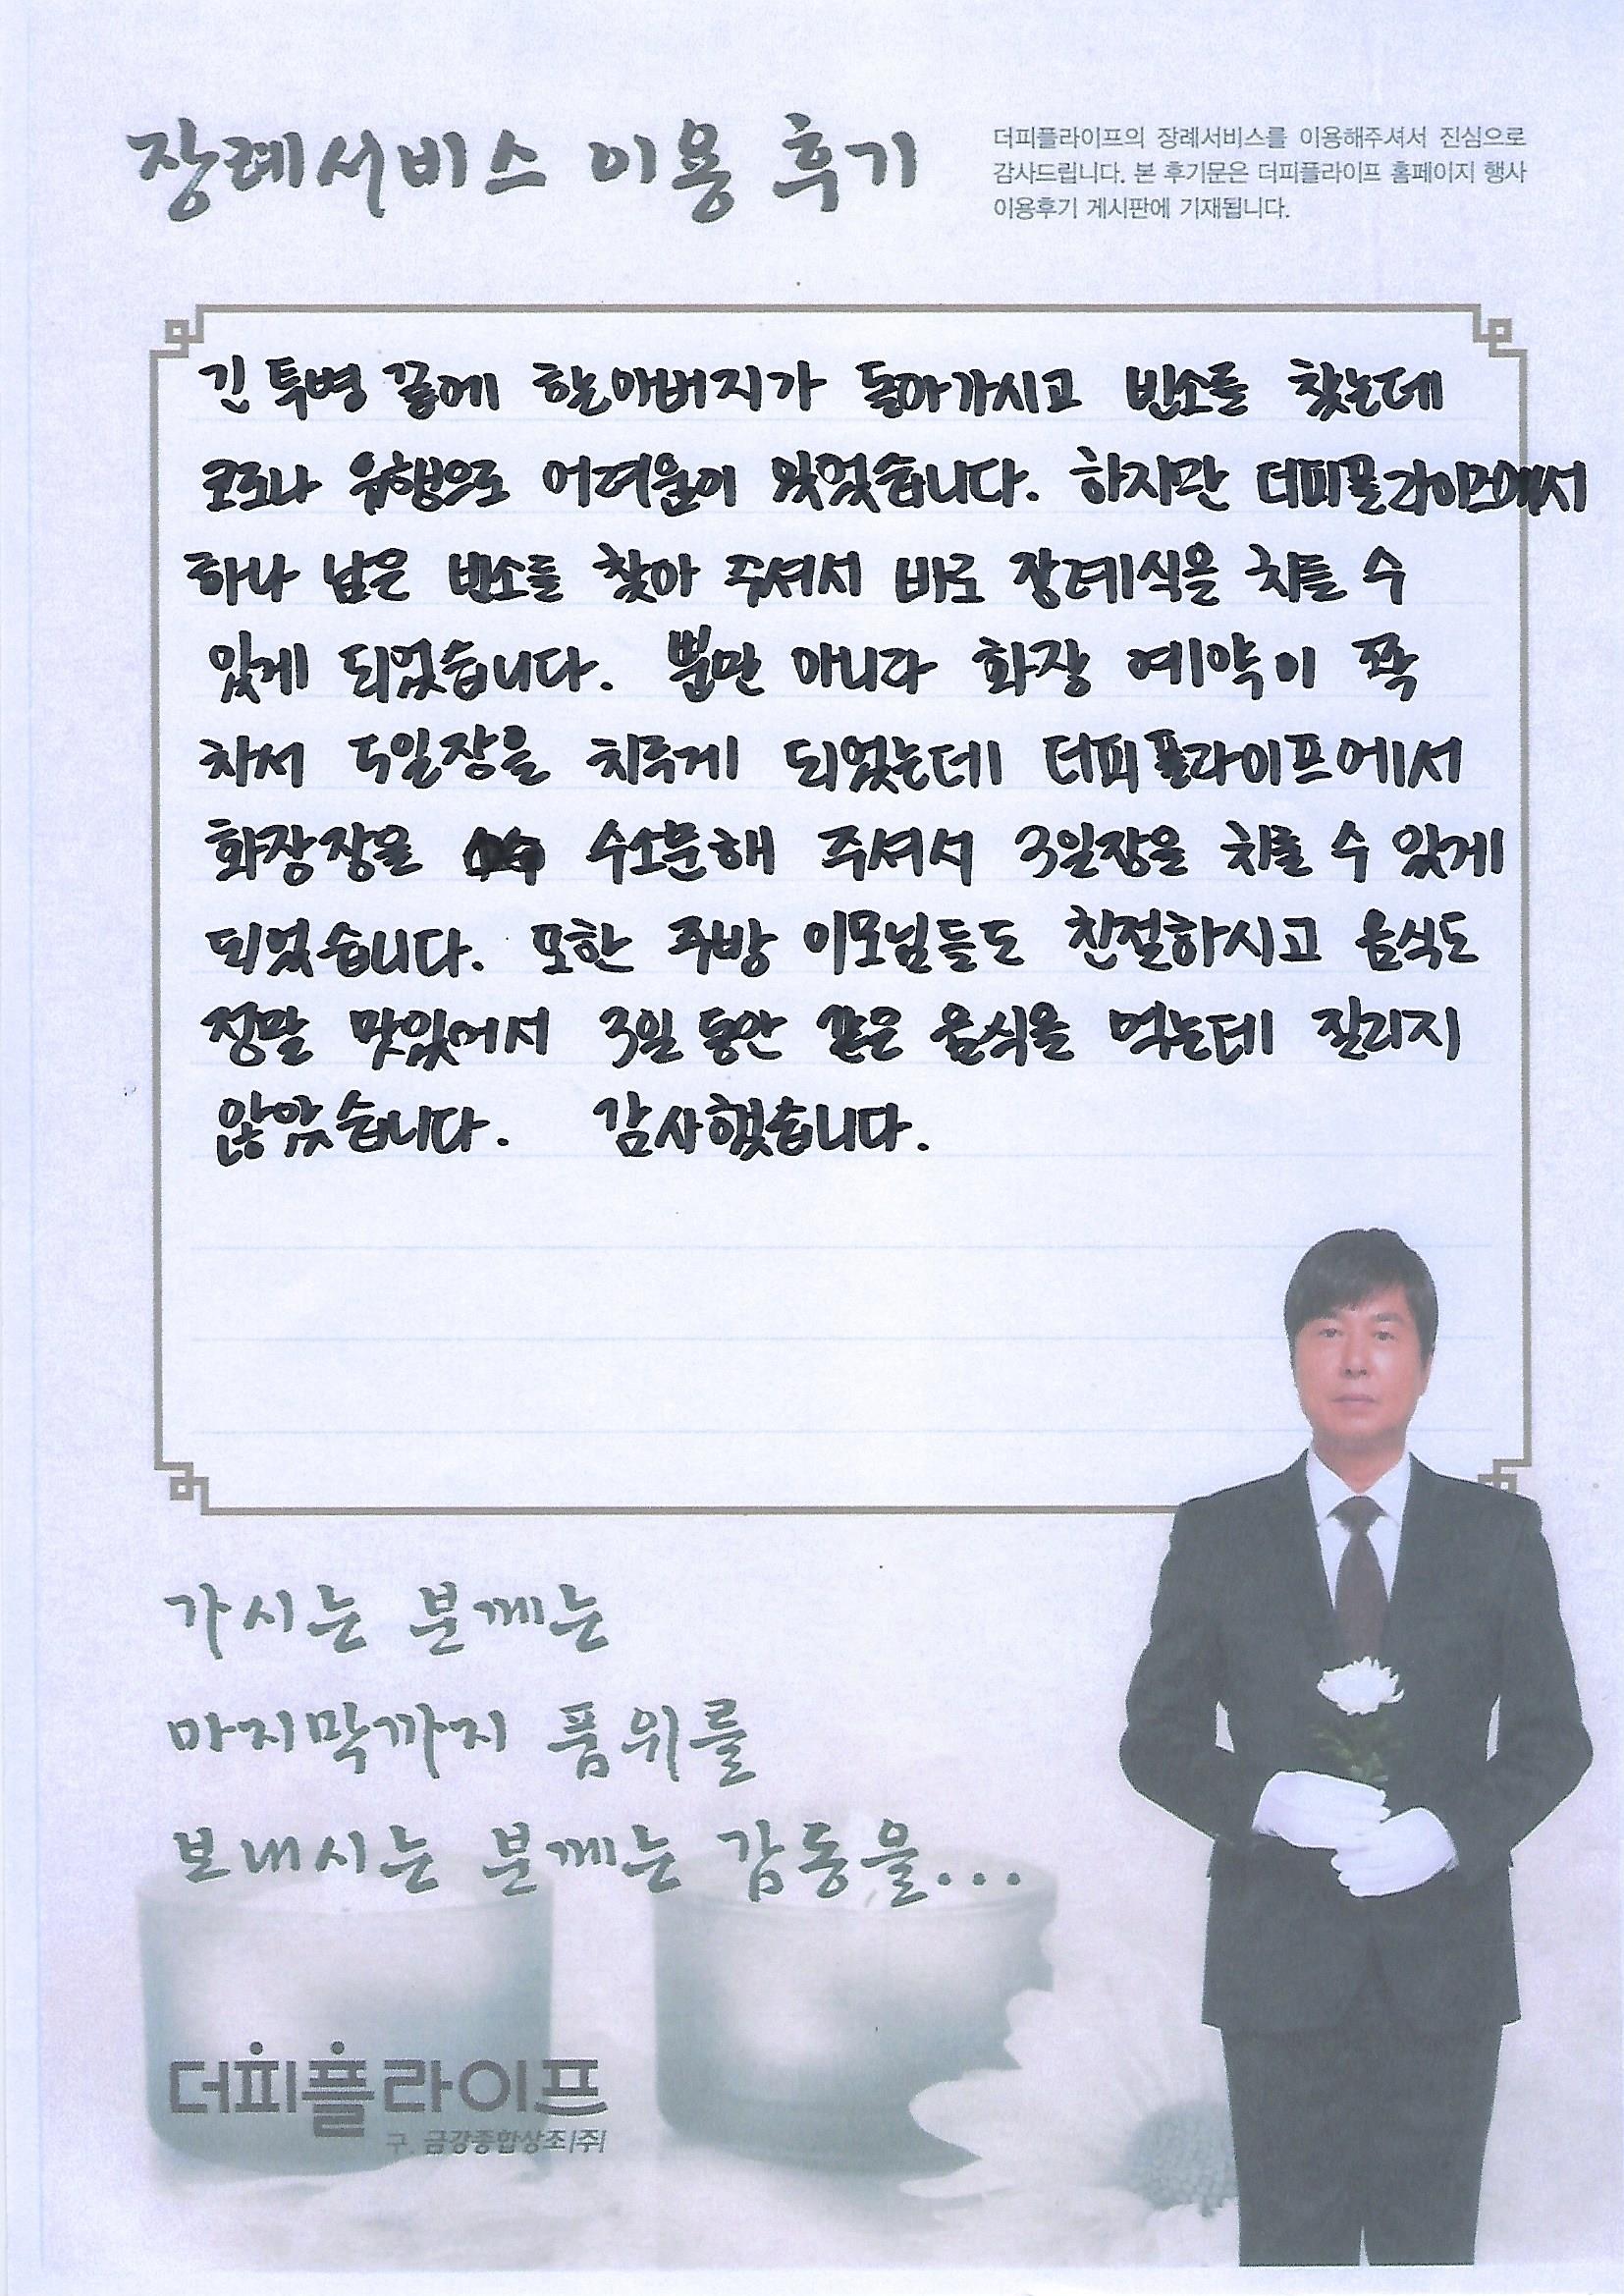 장례서비스 이용 후기
더피플라이프의 장례서비스를 이용해주셔서 진심으로
감사드립니다. 본 후기문은 더피플라이프 홈페이지 행사
이용후기 게시판에 기재됩니다.
긴 투병 끝에 할아버지가 돌아가시고 빈소를 찾는데
코로나 유행으로 어려움이 있었습니다. 하지만 더피플라이프에서
하나 남은 빈소를 찾아 주셔서 바로 장례식을 치를 수
있게 되었습니다. 뿐만 아니라 화장 예약이 꽉
차서 5일장을 치루게 되었는데 더피플라이프에서
화장장을 수소문해 주셔서 3일장을 치를 수 있게
되었습니다. 또한 주방 이모님들도 친절하시고 음식도
정말 맛있어서 3일 동안 같은 음식을 먹는데 질리지
않았습니다. 감사했습니다.
가시는 분께는
마지막까지 품위를
보내시는 분께는 감동을...
더피플라이프
구. 금강종합상조(주)